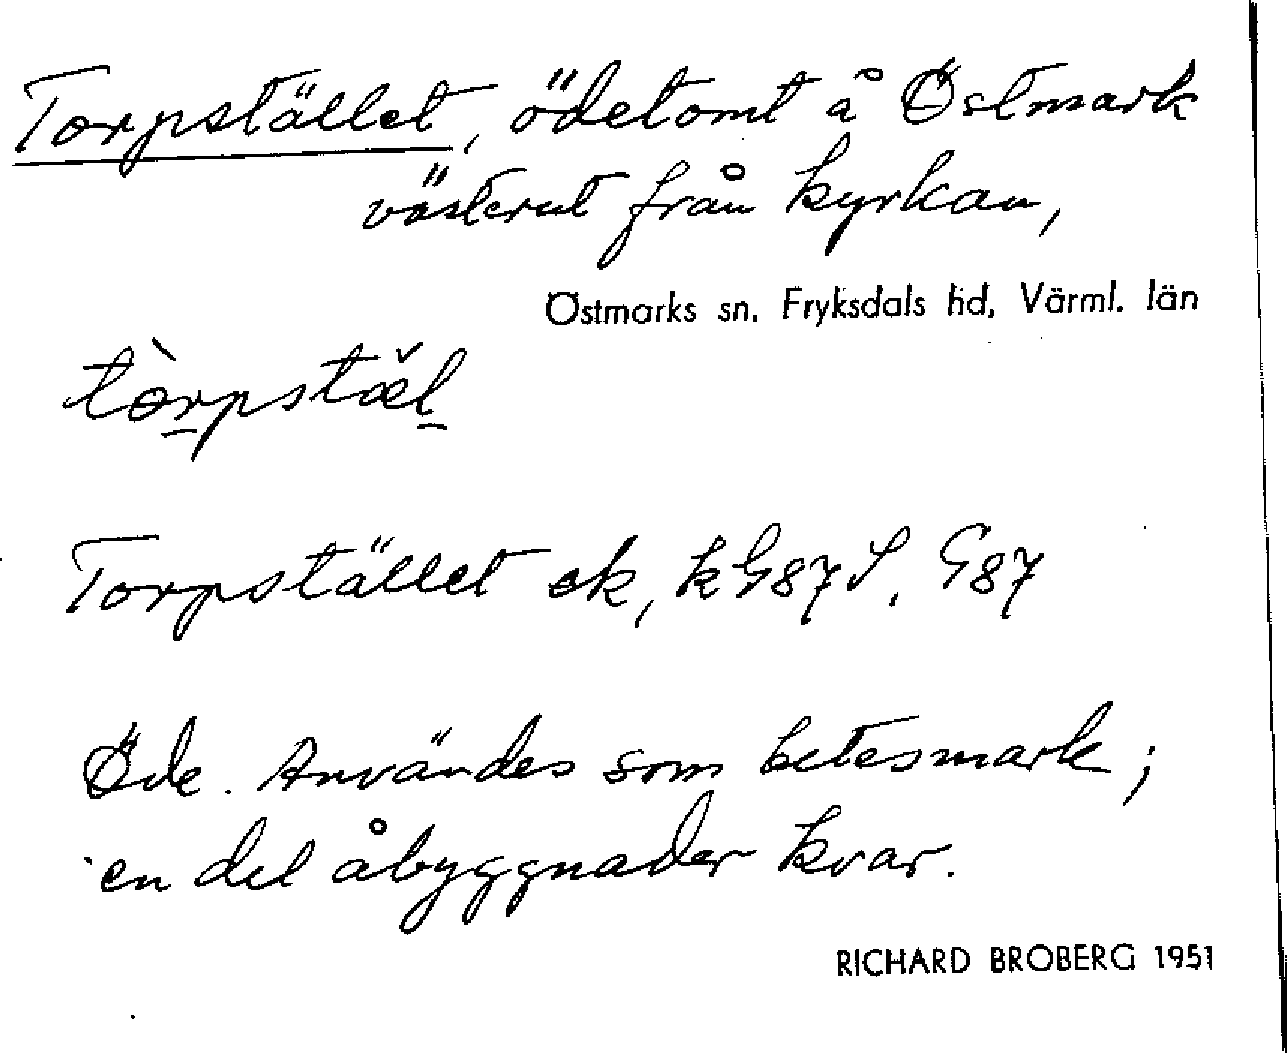 Torpstället, ödetomt å Östmark
västerut från kyrkan,
Östmarks sn. Fryksdals hd, Värml. län
tòrpstæ̌l
Torpstället ek, kG87S, G87
Öde. Användes som betesmark;
en del åbyggnader kvar.
RICHARD BROBERG 1951